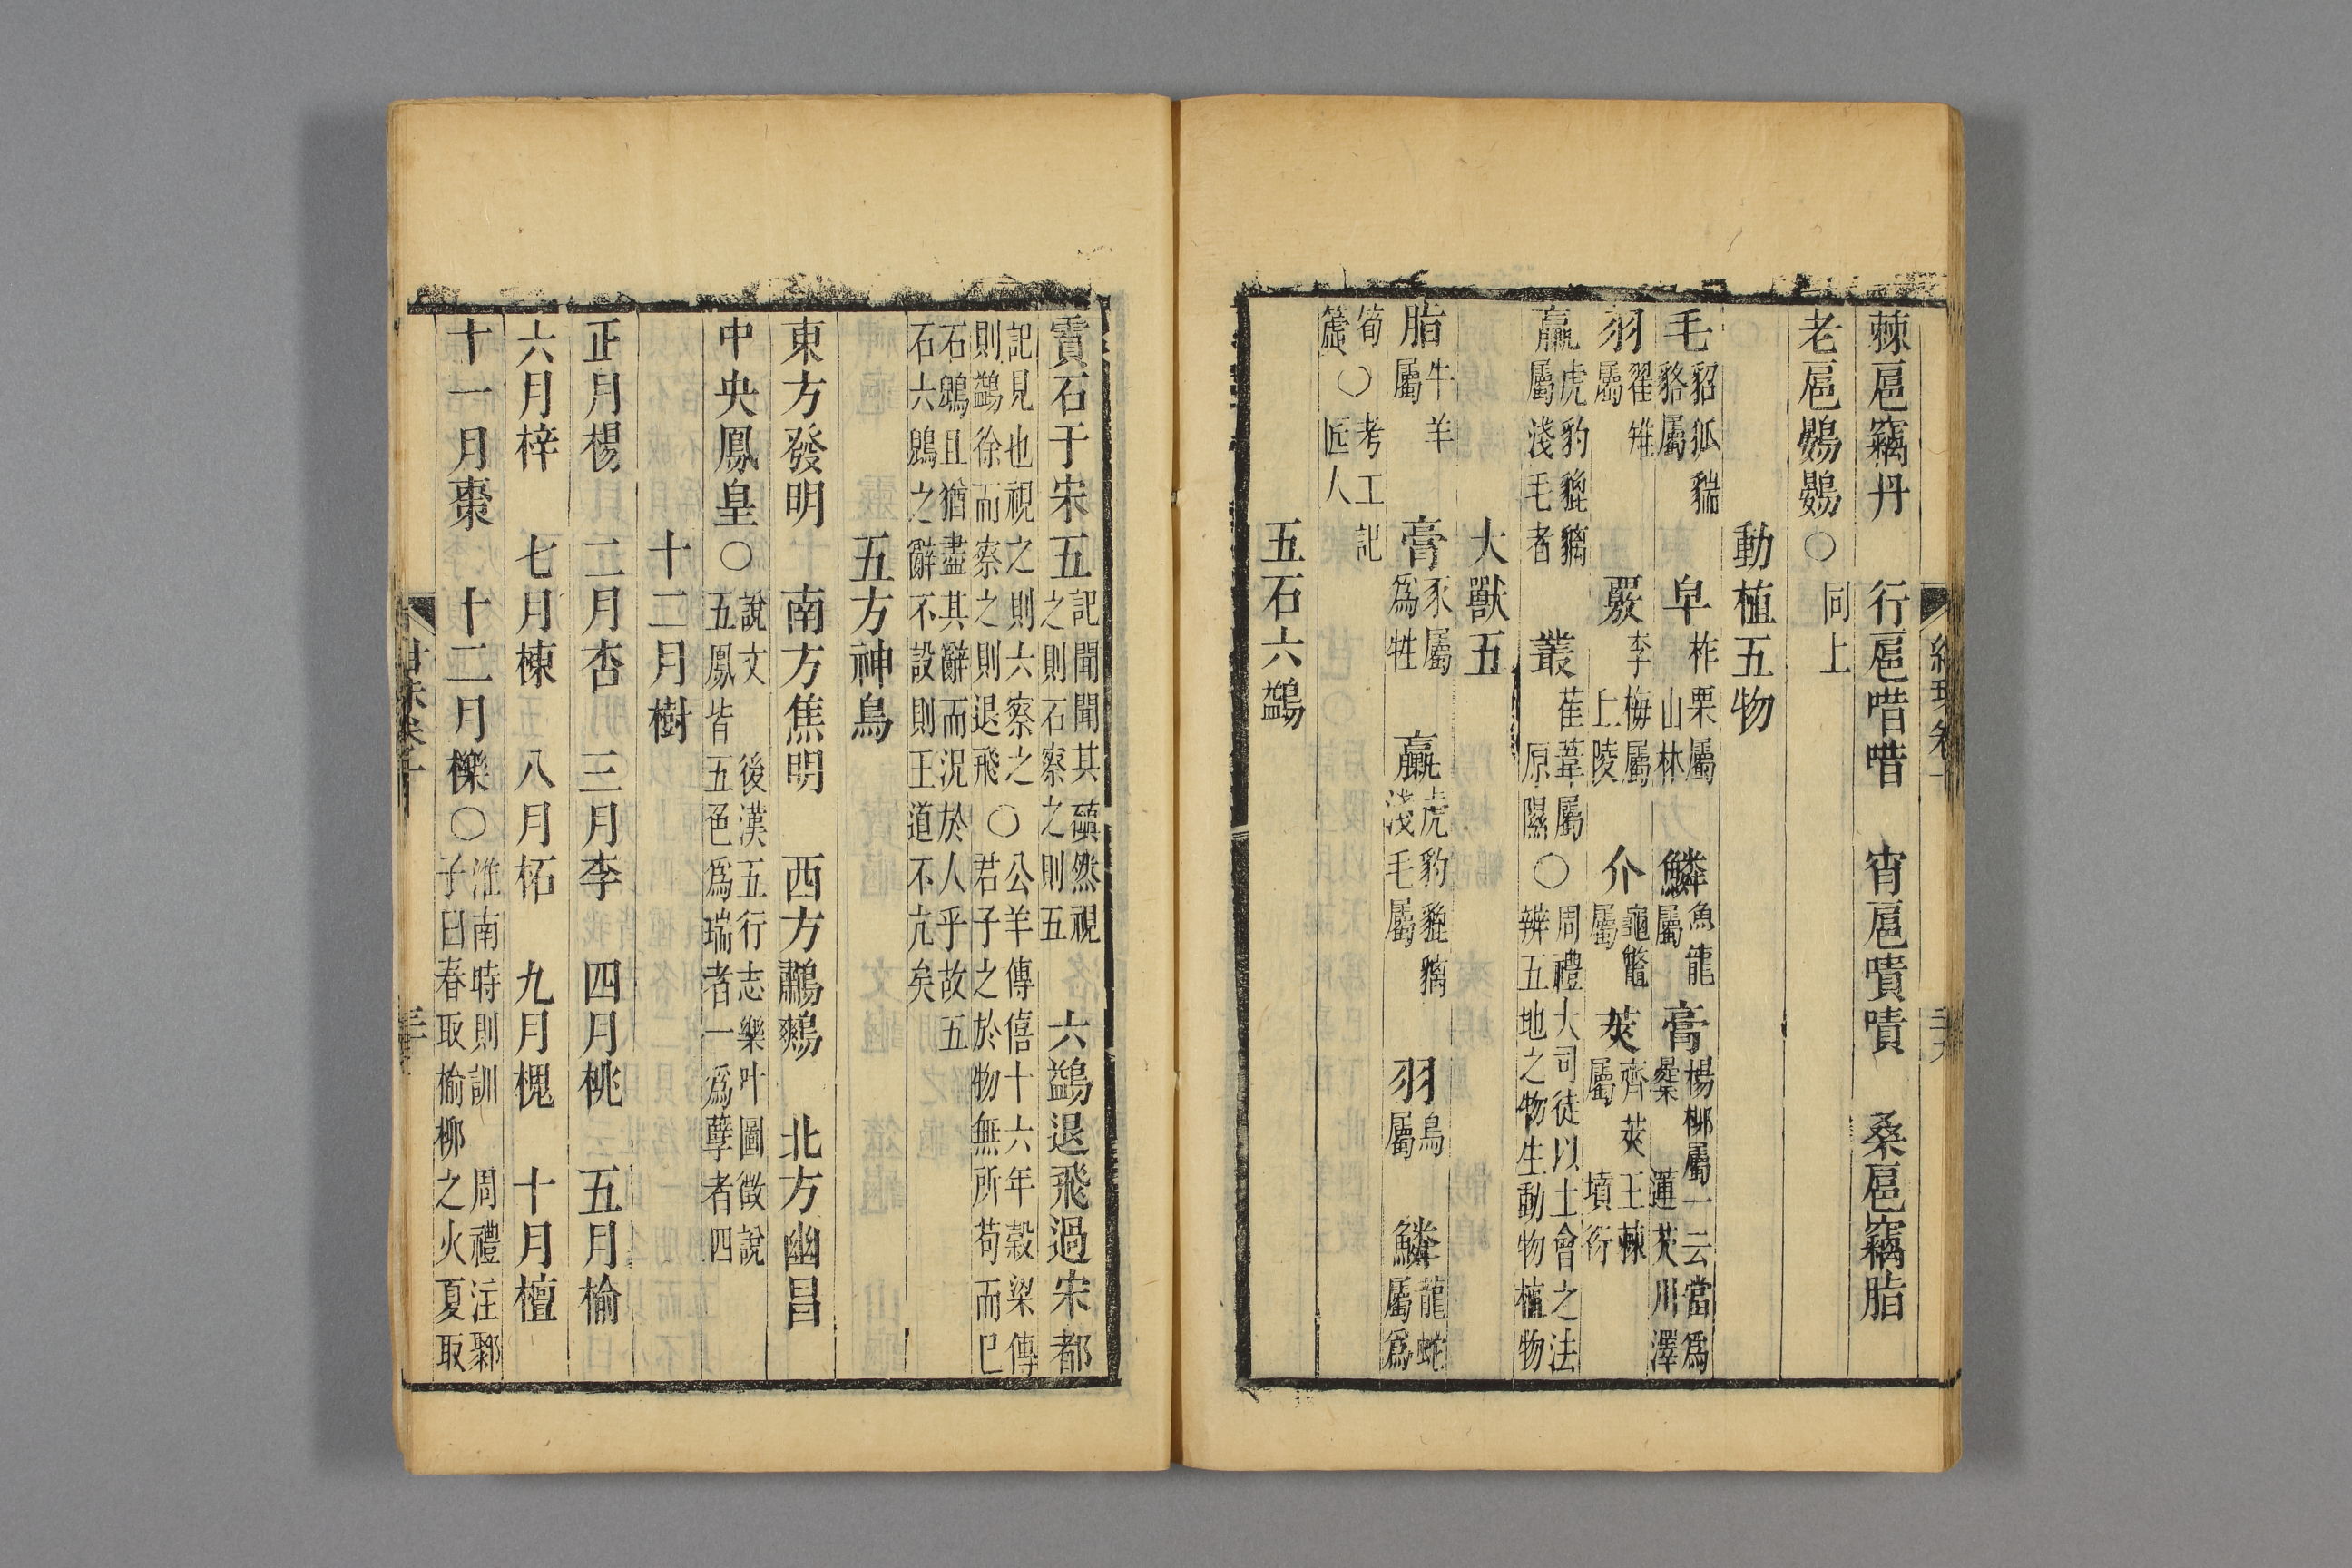 棘鳸竊丹　行鳸唶唶　宵鳸嘖嘖　桑鳸竊脂
老鳸鷃鷃○同上
動植五物
毛貂狐貒貉屬　皁柞栗屬山林　鱗魚龍屬　膏楊柳屬一云當爲櫜蓮芡川澤
羽翟雉屬　覈李梅屬上陵　介龜鼈屬　莢薺莢王棘屬墳衍
臝虎豹貔貐屬淺毛者　叢萑葦屬原隰○周禮大司徒以土會之法辨五地之物生動物植物
大獸五
脂牛羊屬　膏豕屬爲牲　臝虎豹貔貐淺毛屬　羽鳥屬　鱗龍蛇屬爲
筍簴○考工記匠人
五石六鷁
霣石于宋五記聞聞其磌然視之則石察之則五　六鷁退飛過宋都
記見也視之則六察之則鷁徐而察之則退飛○公羊傳僖十六年榖梁傳君子之於物無所苟而已
石鶂且猶盡其辭而況於人乎故五石六鶂之辭不設則王道不亢矣
五方神鳥
東方發明　南方焦明　西方鷫鷞　北方幽昌
中央鳳皇○說文五鳳皆五色爲瑞者一爲孽者四後漢五行志樂叶圖徵說
十二月樹
正月楊　二月杏　三月李　四月桃　五月榆
六月梓　七月楝　八月柘　九月槐　十月檀
十一月棗　十二月櫟○淮南時則訓　周禮注鄹子曰春取榆柳之火夏取